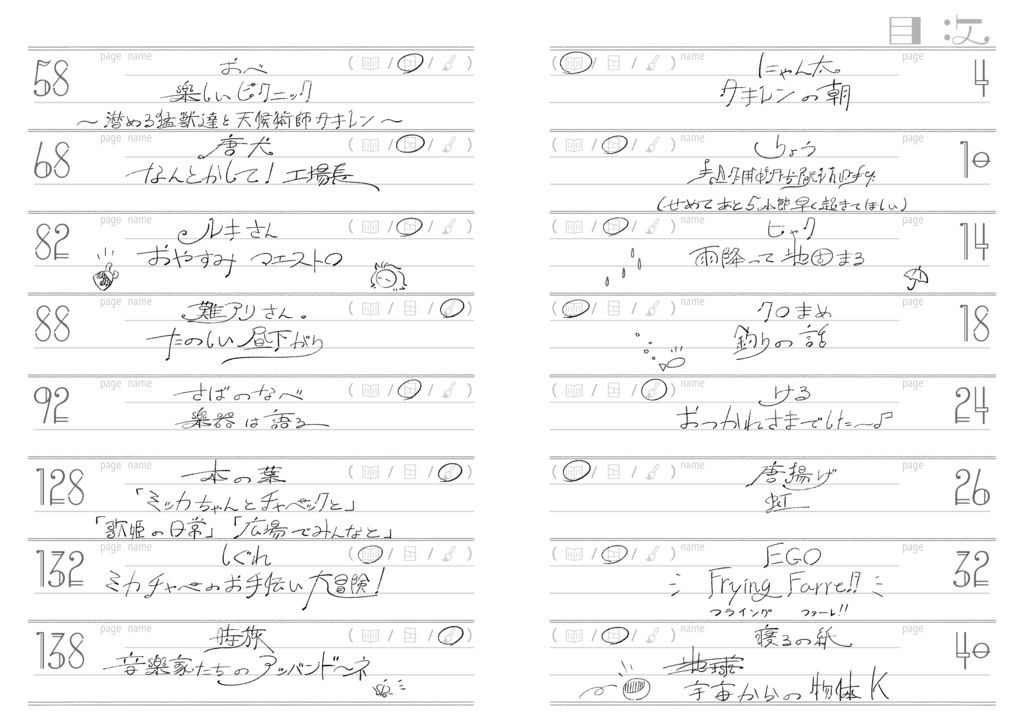 目次
( / / ) name page
にゃん太。 4
カキレンの朝
( / / ) name page
しりょう 10
(せめてあと5小節早く起きてほしい)
( / / ) name page
ヒャク 14
雨降って地固まる
( / / ) name page
クロまめ 18
釣りの話
( / / ) name page
ける 24
おつかれさまでした〜♪
( / / ) name page
唐揚げ 26
虹
( / / ) name page
EGO 32
Frying Farre!!
フライング ファーレ!!
( / / ) name page
寝るの紙 40
宇宙からの物体K
page name ( / / )
58 おべ
楽しいピクニック
〜潜める猛獣達と天候術師カキレン〜
page name ( / / )
68 唐犬
なんとかして!工場長
page name ( / / )
82 ルキさん
おやすみ マエストロ
page name ( / / )
88 難アリさん。
たのしい昼下がり
page name ( / / )
92 さばのなべ
楽器は語る
page name ( / / )
128 本の葉
「ミッカちゃんとチャペックと」
「歌姫の日常」「広場でみんなと」
page name ( / / )
132 しぐれ
ミカチャペのお手伝い大冒険!
page name ( / / )
138 時旅
音楽家たちのアッバンドーネ